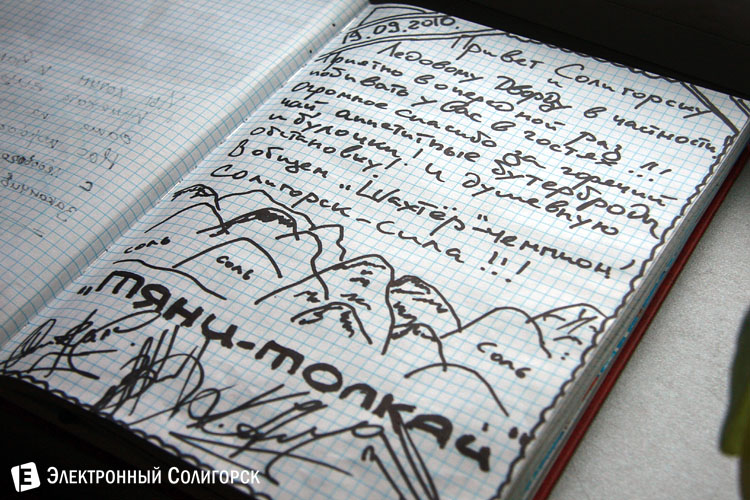 19.09.2010.
Привет Солигорску
и
Ледовому Дворцу в частности
Приятно в очередной раз
побывать у вас в гостях!!!
Огромное спасибо за горячий
чай, аппетитные бутерброды
и булочки! и душевную
обстановку!
В общем "Шахтёр"-чемпион,
Солигорск-сила!!!
соль
соль
соль
"ТЯНИ-ТОЛКАЙ"
Е Электронный Солигорск